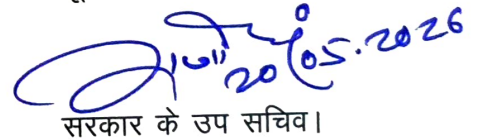 20/05.2026
सरकार के उप सचिव।